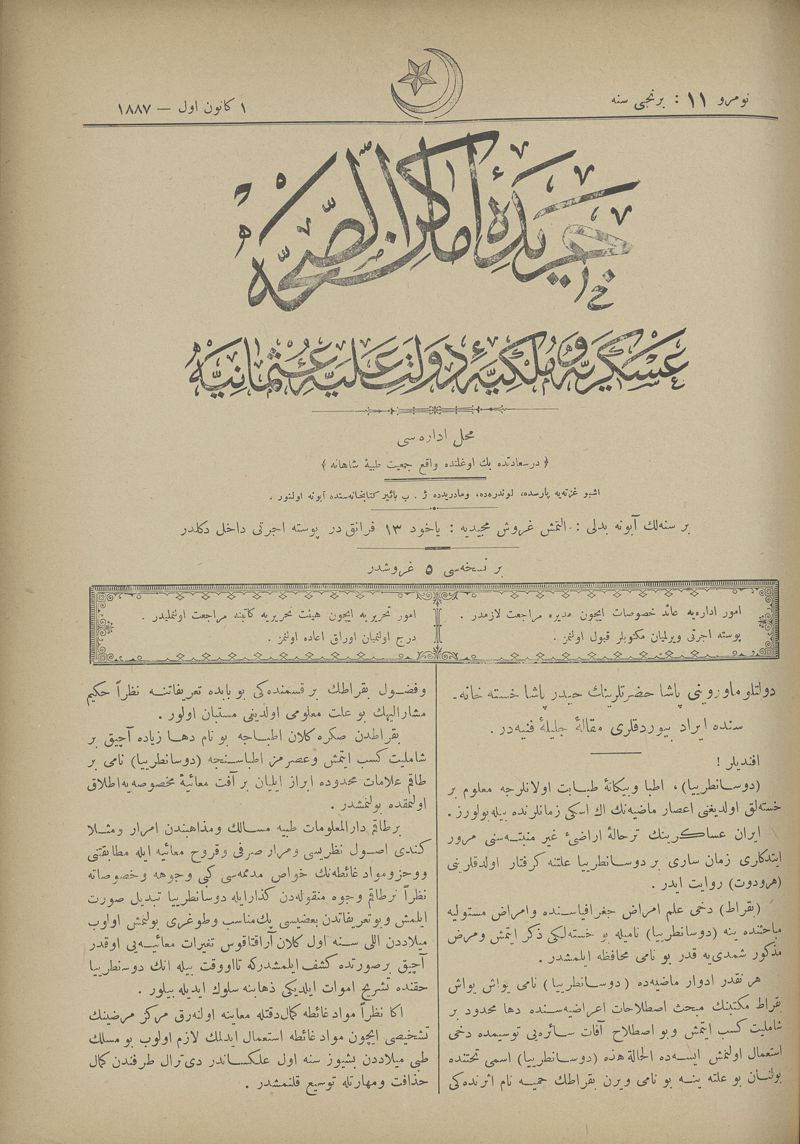 نومرو ١١ : برنجی سنه
١ كانون اول — ١٨٨٧
جريدهٔ اماكن الصحّه
عسكريه و ملكيهٔ دولت عليه عثمانيه
محل اداره‌سی
﴿ درسعادتده بك اوغلنده واقع جمعيت طبيهٔ شاهانه ﴾
اشبو غزته‌يه پارسده، لوندره‌ده، ومادريدده ژ . ب بائير كتابخانه‌سنده آبونه اولنور .
بر سنه‌لك آبونه بدلی : التمش غروش مجيديه : ياخود ١٣ فرانق در پوسته اجرتی داخل دكلدر
بر نسخه‌سی ٥ غروشدر
امور اداره‌يه عائد خصوصات ايچون مديره مراجعت لازمدر .
پوسته اجرتی ويرلميان مكتوبلر قبول اولنمز .
امور تحريريه ايچون هيئت تحريريه كاتبنه مراجعت اولنمليدر .
درج اولنميان اوراق اعاده اولنمز .
دولتلو ماوروينی پاشا حضرتلرينك حيدر پاشا خسته خانه‌ـ
سنده ايراد بيوردقلری مقالهٔ جليلهٔ فنيه‌در .
افنديلر !
(دوسانطريبا)، اطبا وبيكانهٔ طبابت اولانلرجه معلوم بر
خسته‌لق اولديغنی اعصار ماضيه‌نك اك اسكی زمانلرنده بيله بولورز .
ايران عساكرينك ترحالهٔ اراضیٔ غير منبته‌سنی مرور
ايتدكلری زمان ساری بر دوسانطريبا علتنه كرفتار اولدقلرينی
(هرودوت) روايت ايدر .
(بقراط) دخی علم امراض جغرافياسنده وامراض مستوليه
مباحثنده ينه (دوسانطريبا) ناميله بو خسته‌لكی ذكر ايتمش ومرض
مذكور شمدی‌يه قدر بو نامی محافظه ايلمشدر .
هر نقدر ادوار ماضيه‌ده (دوسانطريبا) نامی يواش يواش
بقراط مكتبنك مبحث اصطلاحات اعراضيه‌سنده دها محدود بر
شامليت كسب ايتمش وبو اصطلاح آفات سائره‌يی توسيمده دخی
استعمال اولنمش ايسه‌ده الحالة هذه (دوسانطريبا) اسمی تحتنده
بولنان بو علته ينه بو نامی ويرن بقراطك حميه نام اثرنده‌كی
وفضول بقراطك بر قسمنده‌كی بو بابده تعريفاتنه نظراً حكيم
مشاراليهك بو علت معلومی اولديغی مستبان اولور .
بقراطدن صكره كلان اطباجه بو نام دها زياده آچيق بر
شامليت كسب ايتمش وعصرمز اطباسنجه (دوسانطريبا) نامی بر
طاقم علامات محدوده ابراز ايليان بر آفت معائيهٔ مخصوصه‌يه اطلاق
اولنمقده بولنمشدر .
بر طاقم دارالمعلومات طبيه مسالك ومذاهبندن امرار ومثلا
كندی اصول نظريسی ومرار صرفی وقروح معائيه ايله مطابقتنی
ووحزومواد غائطه‌نك خواص مدممه‌سی كی وجوهه وخصوصاته
نظراً برطاقم وجوه منقوله‌دن كذارايله دوسانطريبا تبديل صورت
ايلمش وبو تعريفاتدن بعضيسی پك مناسب وطوغری بولنمش اولوب
ميلاددن اللی سنه اول كلان آراقتاقوس تغيرات معائيه‌يی اوقدر
آچيق بر صورتده كشف ايلمشدركه تا اووقت بيله انك دوسنطريبا
حقنده تشريح اموات ايلديكی ذهابنه سلوك ايديله بيلور .
اكا نظراً مواد غائطه كمال دقتله معاينه اولنه‌رق مركز مرضينك
تشخيصی ايچون مواد غائطه استعمال ايدلمك لازم اولوب بو مسلك
طبی ميلاددن بشيوز سنه اول علكساندر دی ترال طرفندن كمال
حذاقت ومهارتله توسيع قلنمشدر .